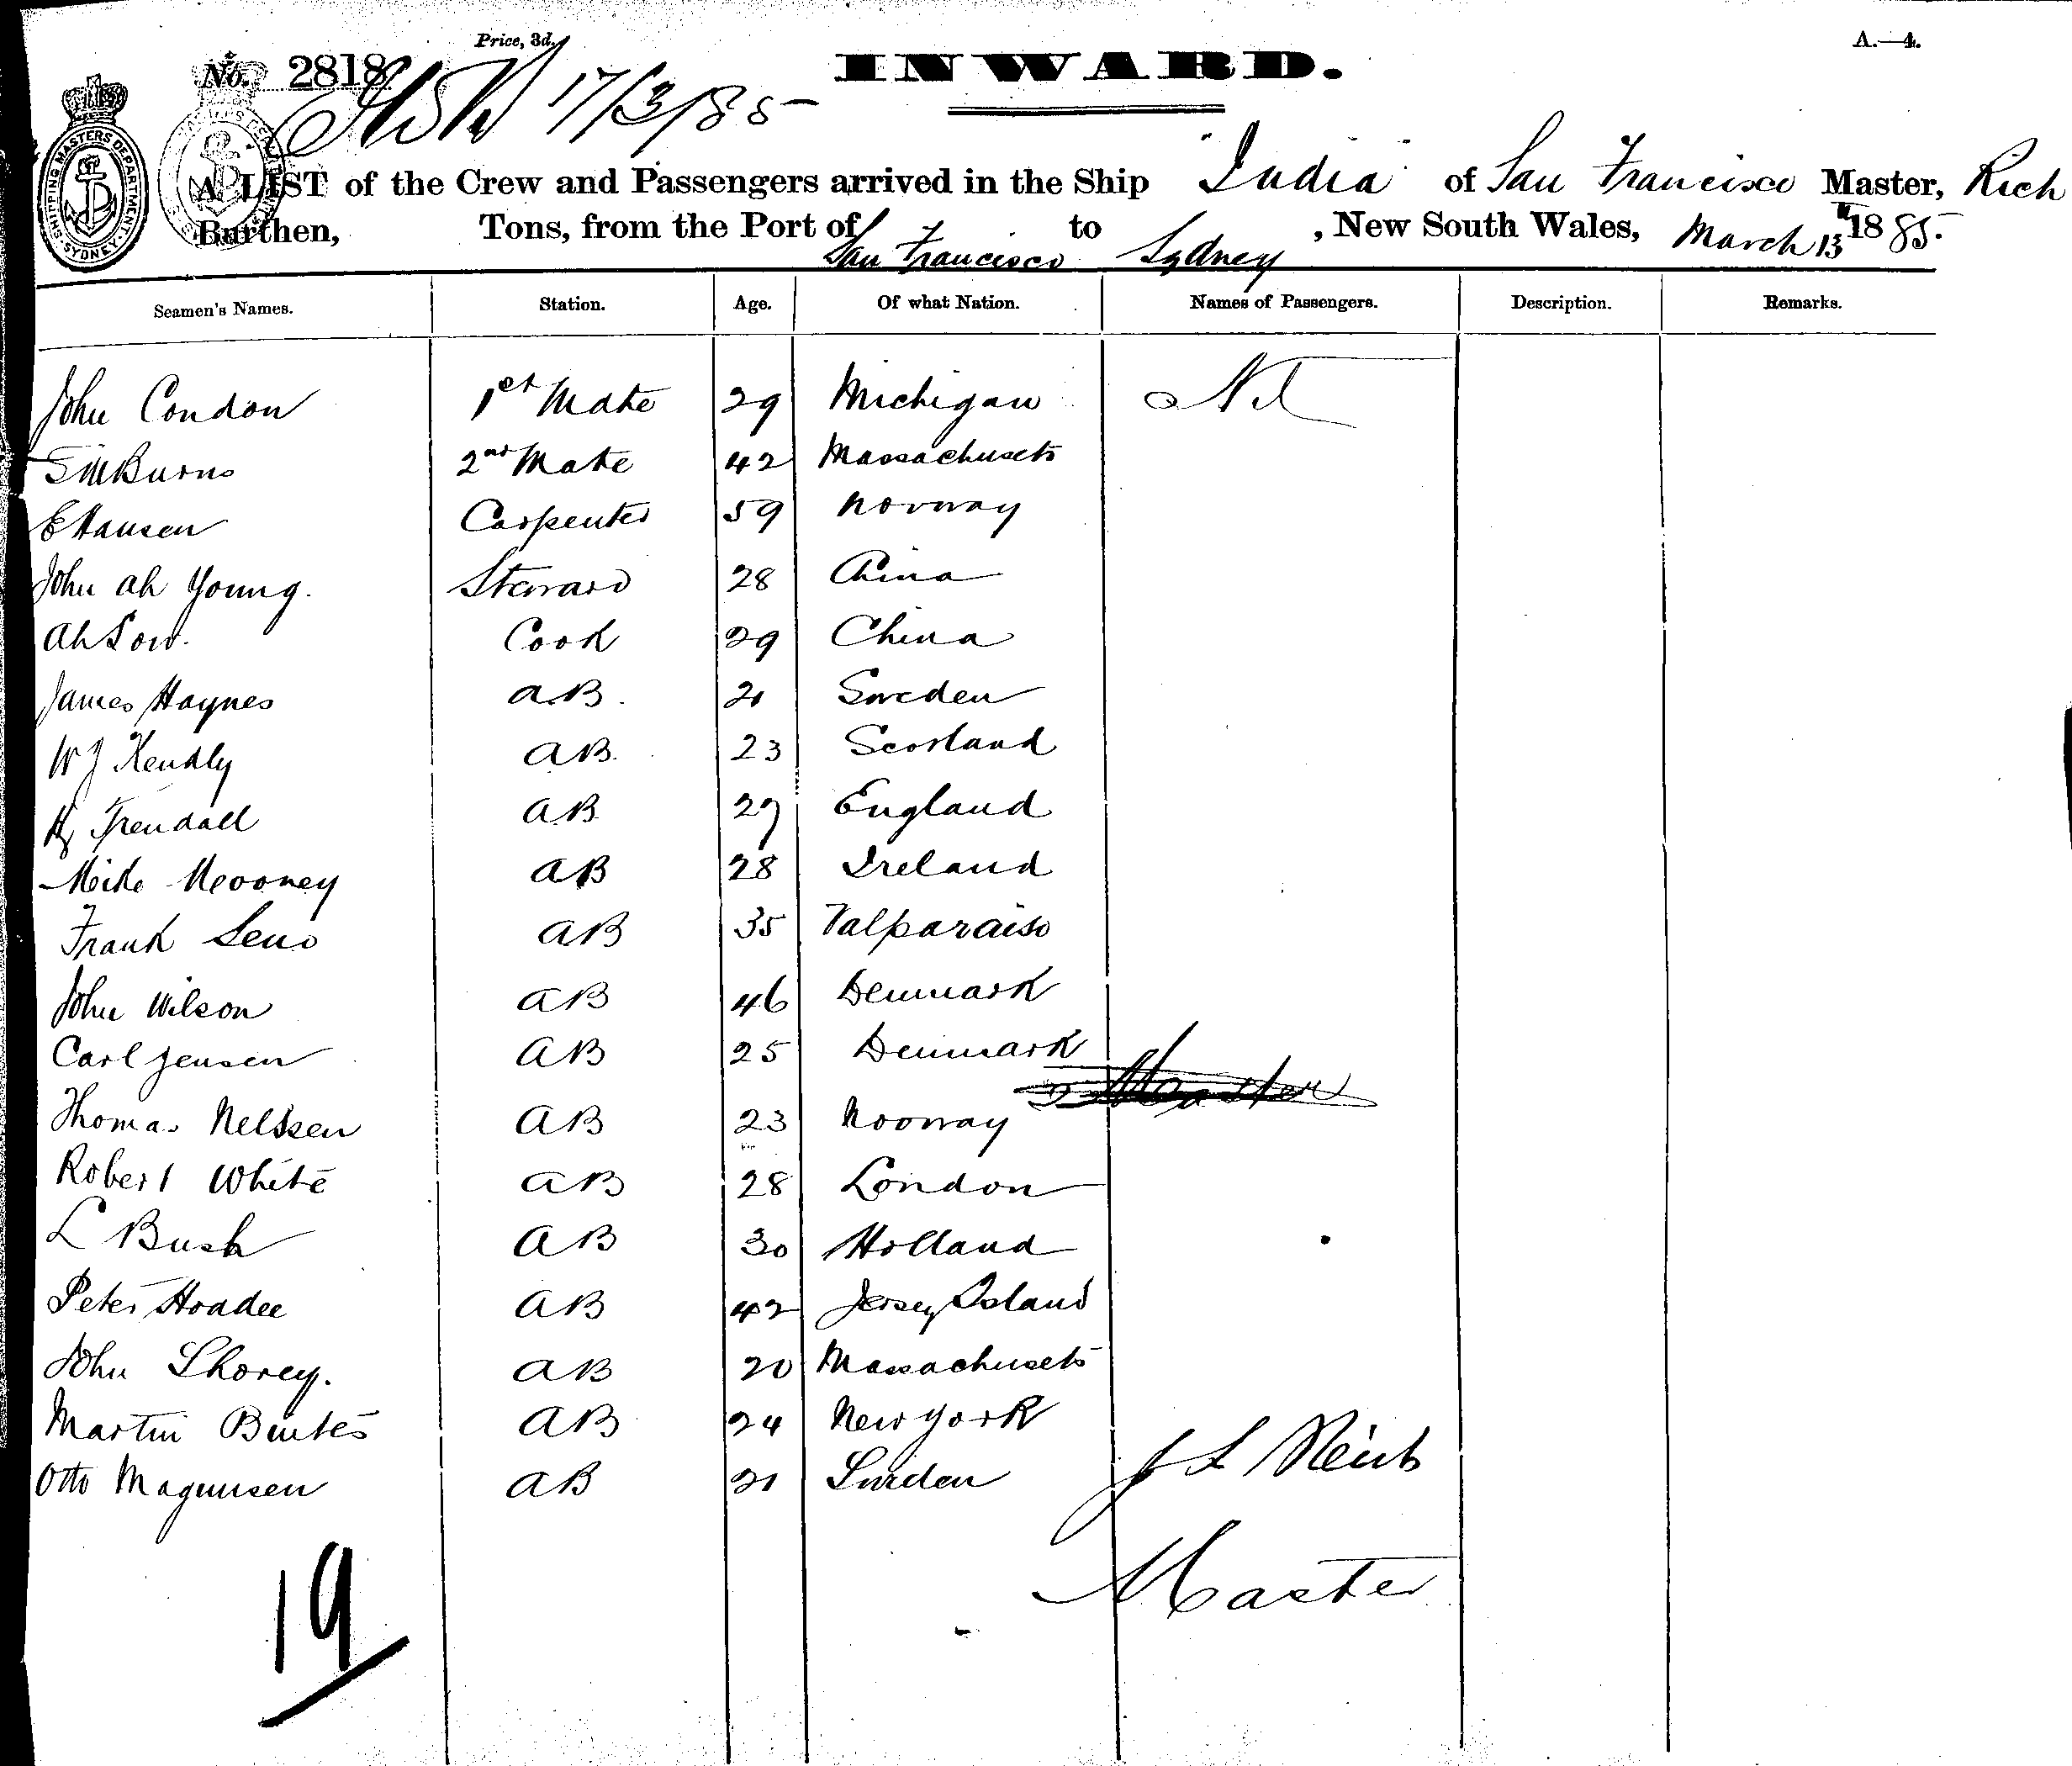 Price, 3d.
A.—4.
No. 2818
INWARD.
17/3/85
A LIST of the Crew and Passengers arrived in the Ship "India" of San Francisco Master, Rich
Burthen, Tons, from the Port of San Francisco to Sydney, New South Wales, March 13th 1885.
SHIPPING MASTERS DEPARTMENT SYDNEY
Seamen's Names. Station. Age. Of what Nation. Names of Passengers. Description. Remarks.
John Condon 1st Mate 29 Michigan Nil
Burns 2nd Mate 42 Massachusets
E Hansen Carpenter 59 Norway
John ah Young. Steward 28 China
Ah Cook 29 China
James Haynes AB. 21 Sweden
W J Kendly AB. 23 Scotland
Hy Trendall AB. 27 England
Mike Mooney AB 28 Ireland
Frank Leno AB 35 Valparaiso
John Wilson AB 46 Denmark
Carl Jensen AB 25 Denmark
Master
Thomas Nelssen AB 23 Norway
Robert White AB 28 London
L Bush AB 30 Holland
Peter AB 42 Jersey Island
John Shorey. AB 20 Massachusets
Martin AB 24 New York
Otto Magnusen AB 21 Sweden
J L
Master
19